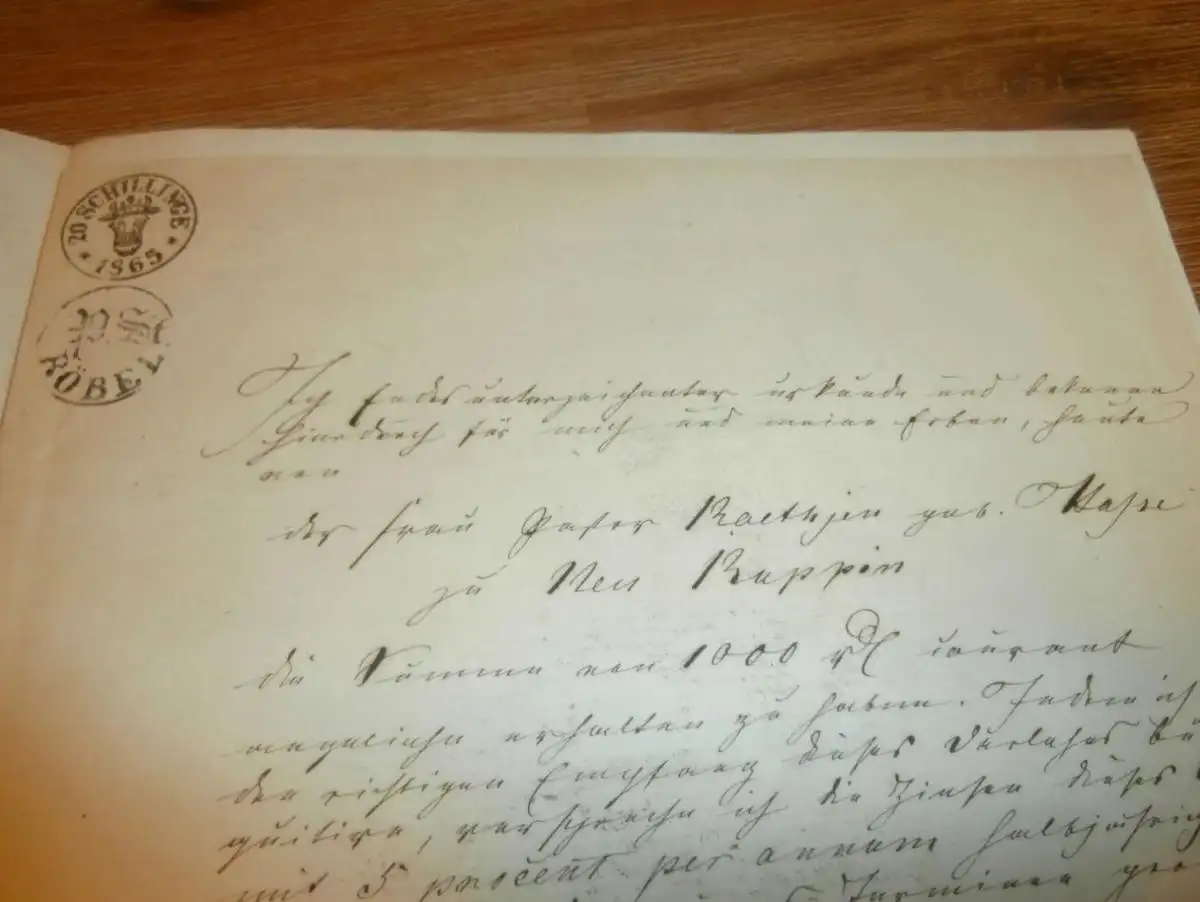 20 SCHILLINGE
* 1865 *
RÖBEL
Ich Endesunterzeichneter urkunde und bekenne
hierdurch für mich und meine Erben, heute
von
der Frau Pastor Raethjen geb.
zu Neu Ruppin
die Summe von 1000 rℓ courant
angeliehn erhalten zu haben. Indem ich
den richtigen Empfang dieses Darlehns
quitire, verspreche ich die Zinsen dieses
mit 5 procent per annum halbjährig
Terminen